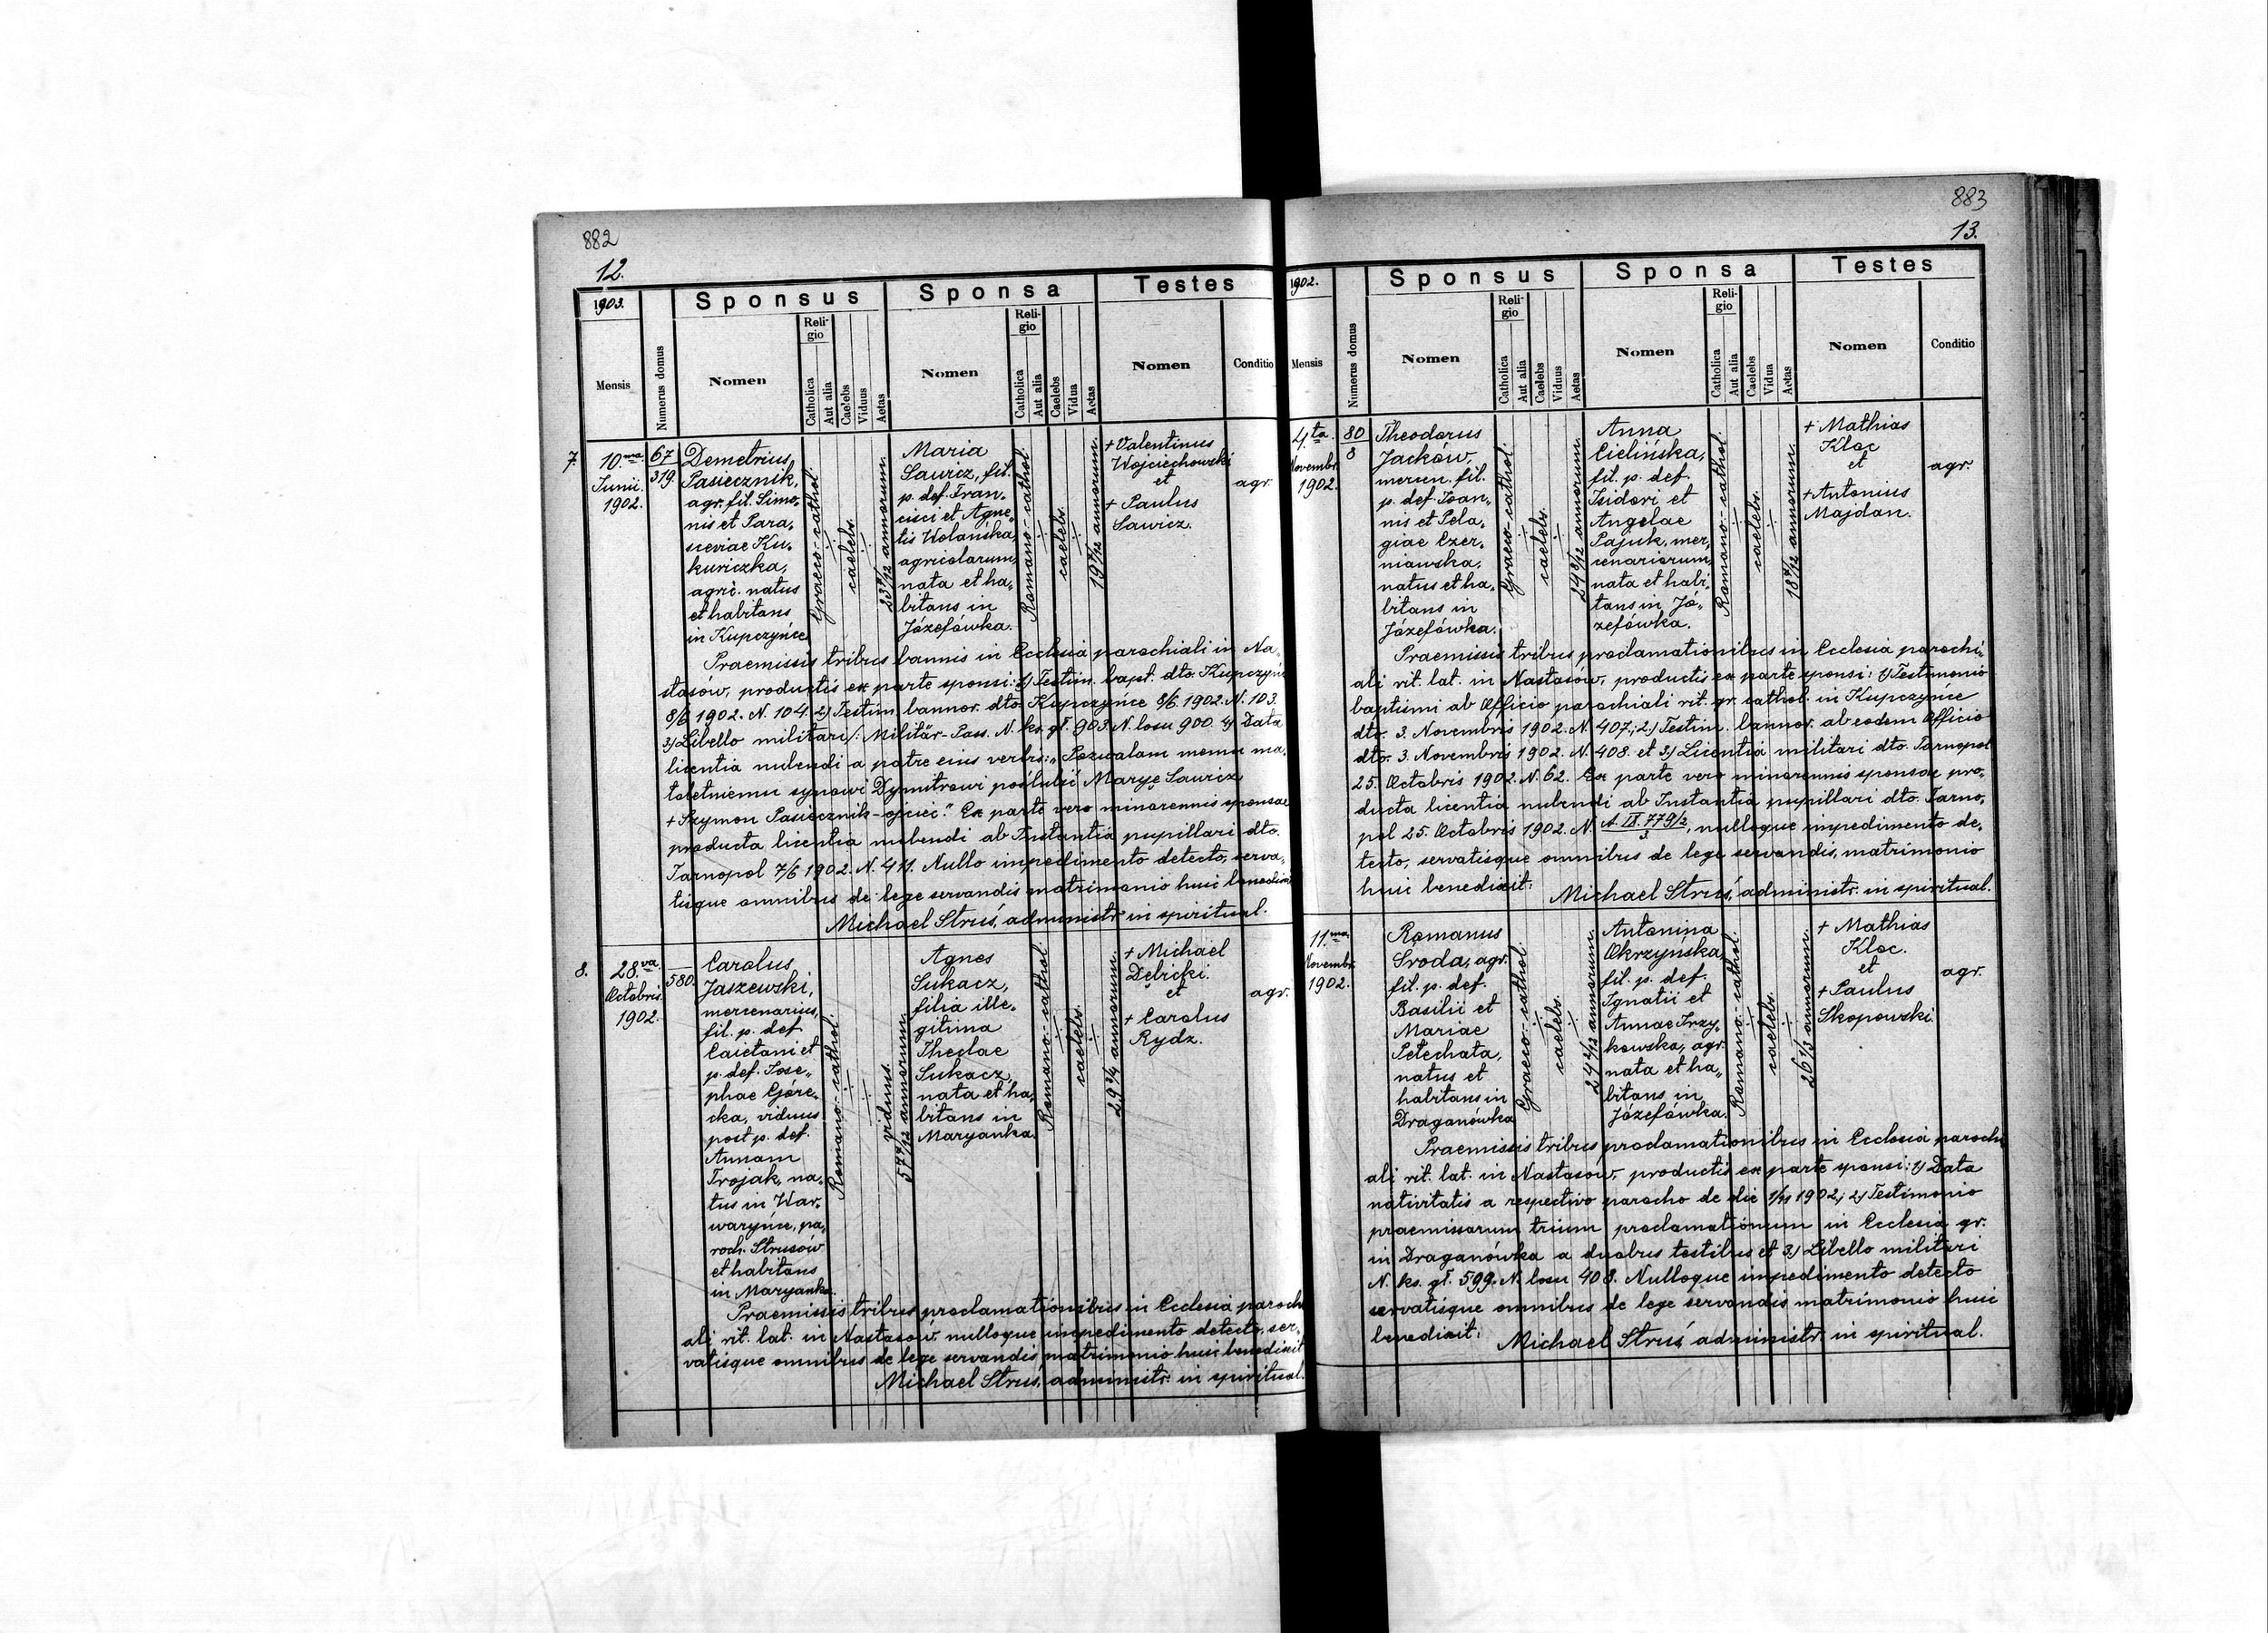 882
12.
1903.
Sponsus
Sponsa
Testes
Mensis
Numerus domus
Nomen
Religio
Catholica
Aut alia
Caelebs
Viduus
Aetas
Nomen
Religio
Catholica
Aut alia
Caelebs
Vidua
Aetas
Nomen
Conditio
7.
10.ma
Junii.
1902.
67
319.
Demetrius
Pasiecznik,
agr. fil. Simo„
nis et Para„
sceviae Ku„
kuriczka,
agric. natus
et habitans
in Kupczyńce
Graeco-cathol.
caelebs.
annorum.
Maria
Sawicz, fil.
p. def. Fran„
cisci et Agne„
tis Wolańska,
agricolarum,
nata et ha„
bitans in
Józefówka.
Romano-cathol.
caelebs.
annorum.
+ Valentinus
Wojciechowski
et
+ Paulus
Sawicz.
agr.
Praemissis tribus bannis in Ecclesia parochiali in Na„
stasów, productis ex parte sponsi: 1) Testim. bapt. dto. Kupczyńce
8/6 1902. N. 104. 2) Testim. bannor. dto. Kupczyńce 8/6 1902. N. 103.
3) Libello militari /: Militär-Pass. N. ks. gł. 903. N. losu 900. 4) Data
licentia nubendi a patre eius verbis: „Pozwalam memu ma„
toletniemu synowi Dymitrowi poślubić Maryę Sawicz
+ Szymon Pasiecznik-ojciec." Ex parte vero minorennis sponsae
producta licentia nubendi ab Instantia pupillari dto.
Tarnopol 7/6 1902. N. 411. Nullo impedimento detecto, serva„
tisque omnibus de lege servandis matrimonio huic benedixit
Michael Struś, administr. in spiritual.
8.
28.va
Octobris
1902.
580.
Carolus
Jaszewski,
mercenarius,
fil. p. def.
Caietani et
p. def. Jose„
phae Góre„
cka, viduus
post p. def.
Annam
Trojak, na„
tus in War„
waryńce, pa„
roch. Strusów
et habitans
in Maryanka.
Romano-cathol.
viduus.
annorum.
Agnes
Sukacz,
filia ille„
gitima
Theclae
Sukacz,
nata et ha„
bitans in
Maryanka.
Romano-cathol.
caelebs.
29 3/4 annorum.
+ Michael
Dębicki.
et
+ Carolus
Rydz.
agr.
Praemissis tribus proclamationibus in Ecclesia parochi
ali rit. lat. in Nastasów nulloque impedimento detecto, ser„
vatisque omnibus de lege servandis matrimonio huic benedixit
Michael Struś, administr. in spiritual.
883
13.
1902.
Sponsus
Sponsa
Testes
Mensis
Numerus domus
Nomen
Religio
Catholica
Aut alia
Caelebs
Viduus
Aetas
Nomen
Religio
Catholica
Aut alia
Caelebs
Vidua
Aetas
Nomen
Conditio
4.ta
Novembr.
1902.
80
8
Theodorus
Jacków,
mercen. fil.
p. def. Joan„
nis et Pela„
giae Czer„
niawska,
natus et ha„
bitans in
Józefówka.
Graeco-cathol.
caelebs.
annorum.
Anna
Cielińska,
fil. p. def.
Isidori et
Angelae
Pajuk, mer„
cenariorum,
nata et habi„
tans in Jó„
zefówka.
Romano-cathol.
caelebs.
annorum.
+ Mathias
Kloc
et
+ Antonius
Majdan.
agr.
Praemissis tribus proclamationibus in Ecclesia parochi„
ali rit. lat. in Nastasów, productis ex parte sponsi: 1) Testimonio
baptismi ab Officio parochiali rit. gr. cathol. in Kupczynce
dto. 3. Novembris 1902. N. 407.; 2.) Testim. bannor. ab eodem Officio
dto. 3. Novembris 1902. N. 408. et 3.) Licentia militari dto. Tarnopol
25. Octobris 1902. N. 62. Ex parte vero minorennis sponsae pro„
ducta licentia nubendi ab Instantia pupillari dto. Tarno„
pol 25. Octobris 1902. N. A. IX. 779/2, nulloque impedimento de„
tecto, servatisque omnibus de lege servandis, matrimonio
huic benedixit:
Michael Struś, administr. in spiritual.
11.ma
Novembr.
1902.
Romanus
Sroda, agr.
fil. p. def.
Basilii et
Mariae
Petechata,
natus et
habitans in
Draganówka
Graeco-cathol.
caelebs.
annorum.
Antonina
Okrzyńska,
fil. p. def.
Ignatii et
Annae Trzy„
kowska, agr.
nata et ha„
bitans in
Józefówka.
Romano-cathol.
caelebs.
26 1/3 annorum.
+ Mathias
Kloc.
et
+ Paulus
Skopowski.
agr.
Praemissis tribus proclamationibus in Ecclesia parochi
ali rit. lat. in Nastasów, productis ex parte sponsi: 1) Data
nativitatis a respectivo parocho de die 1/11 1902; 2) Testimonio
praemissarum trium proclamationum in Ecclesia gr.
in Draganówka a duobus testibus et 3.) Libello militari
N. ks. gł. 599. N. losu 408. Nulloque impedimento detecto
servatisque omnibus de lege servandis matrimonio huic
benedixit:
Michael Struś administr. in spiritual.